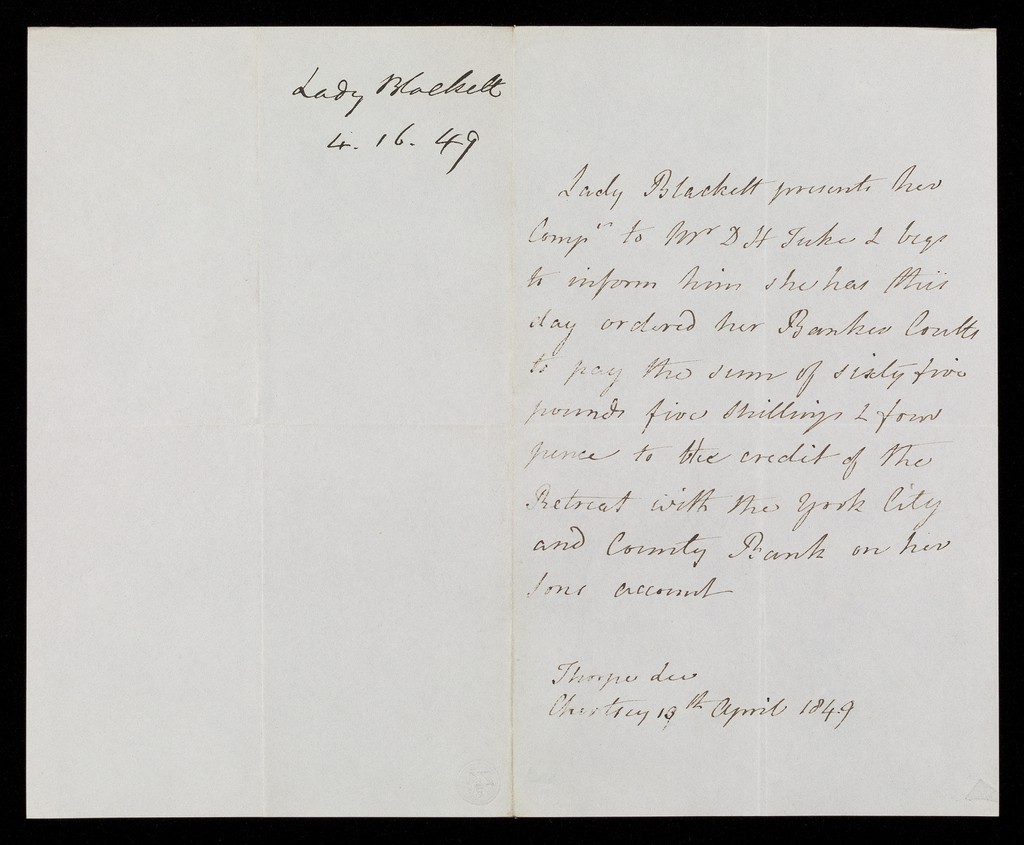 Lady Blackett
4. 16. 49
Lady Blackett presents her
Comp^ts to Mr D H Tuke & begs
to inform him she has this
day ordered her Banker Coutts
to pay the sum of sixty five
pounds five shillings & four
pence to the credit of the
Retreat with the York City
and County Bank on her
sons account
Thorpe Lee
Chertsey 13th April 1849